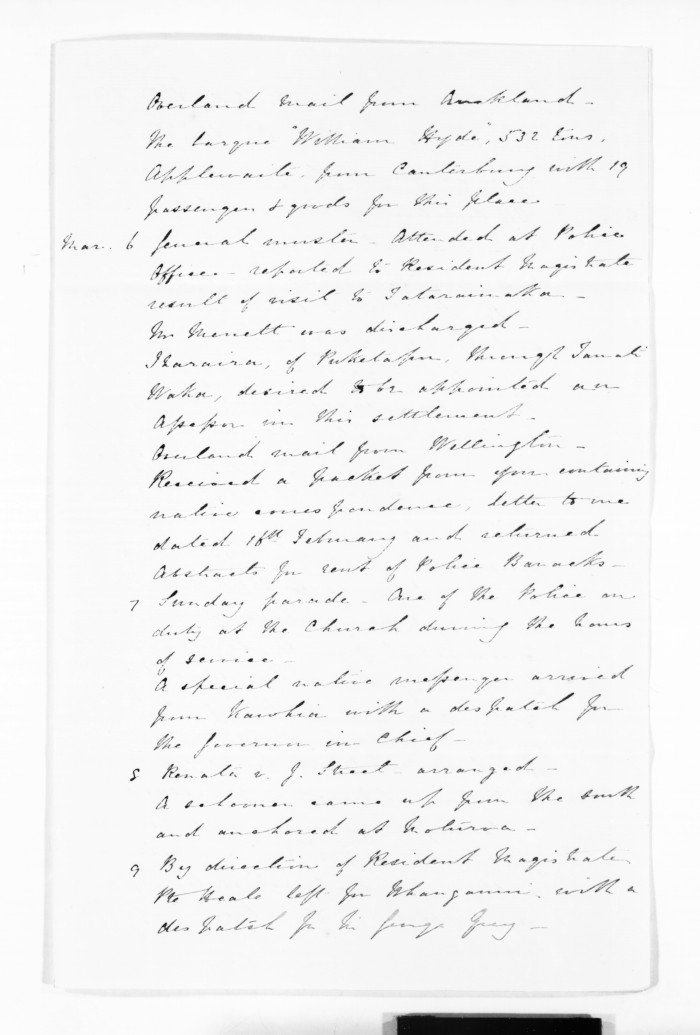 Overland mail from Auckland -
The barque "William Hyde", 532 tons,
Applewaite, from Canterbury with 19
passengers & goods for this place -
Mar. 6 General muster - Attended at Police
Office - reported to Resident Magistrate
result of visit to Tataraimaka -
Mr was discharged -
of Puketapu, through Tamati
Waka, desired to be appointed an
Assessor in this settlement -
Overland mail from Wellington -
Received a packet from you containing
native correspondence, letter to me
dated 18th February and returned
Abstracts for rent of Police Barracks -
7 Sunday parade - One of the Police on
duty at the Church during the hours
of service -
A special native messenger arrived
from Kawhia with a despatch for
the Governor in Chief -
8 Renata v. J. Street - arranged -
A schooner came up from the south
and anchored at Moturoa -
9 By direction of Resident Magistrate
Pte left for Whanganui, with a
despatch for Sir George Grey -